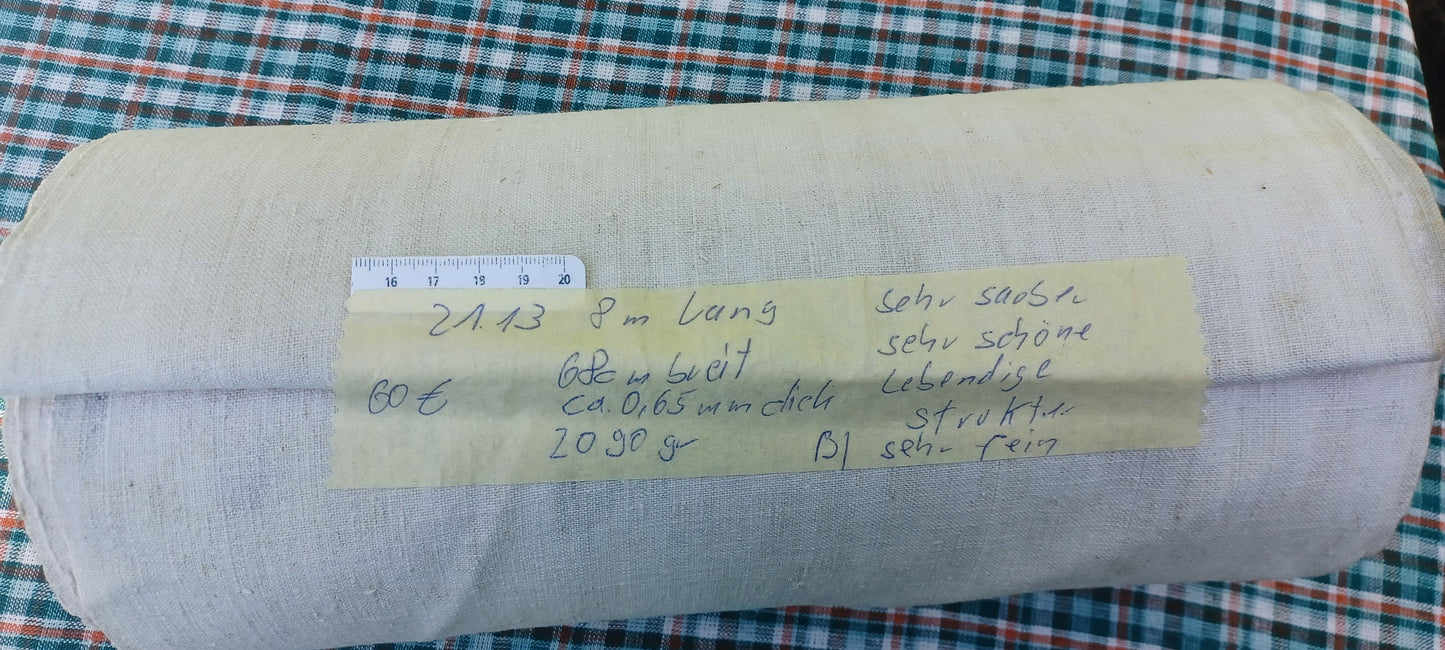 16 17 18 19 20
21.13 8 m Lang
60 €
68cm breit
ca. 0,65 mm dick
2090 gr
B)
sehr sauber
sehr schöne
Lebendige
Struktur
sehr fein